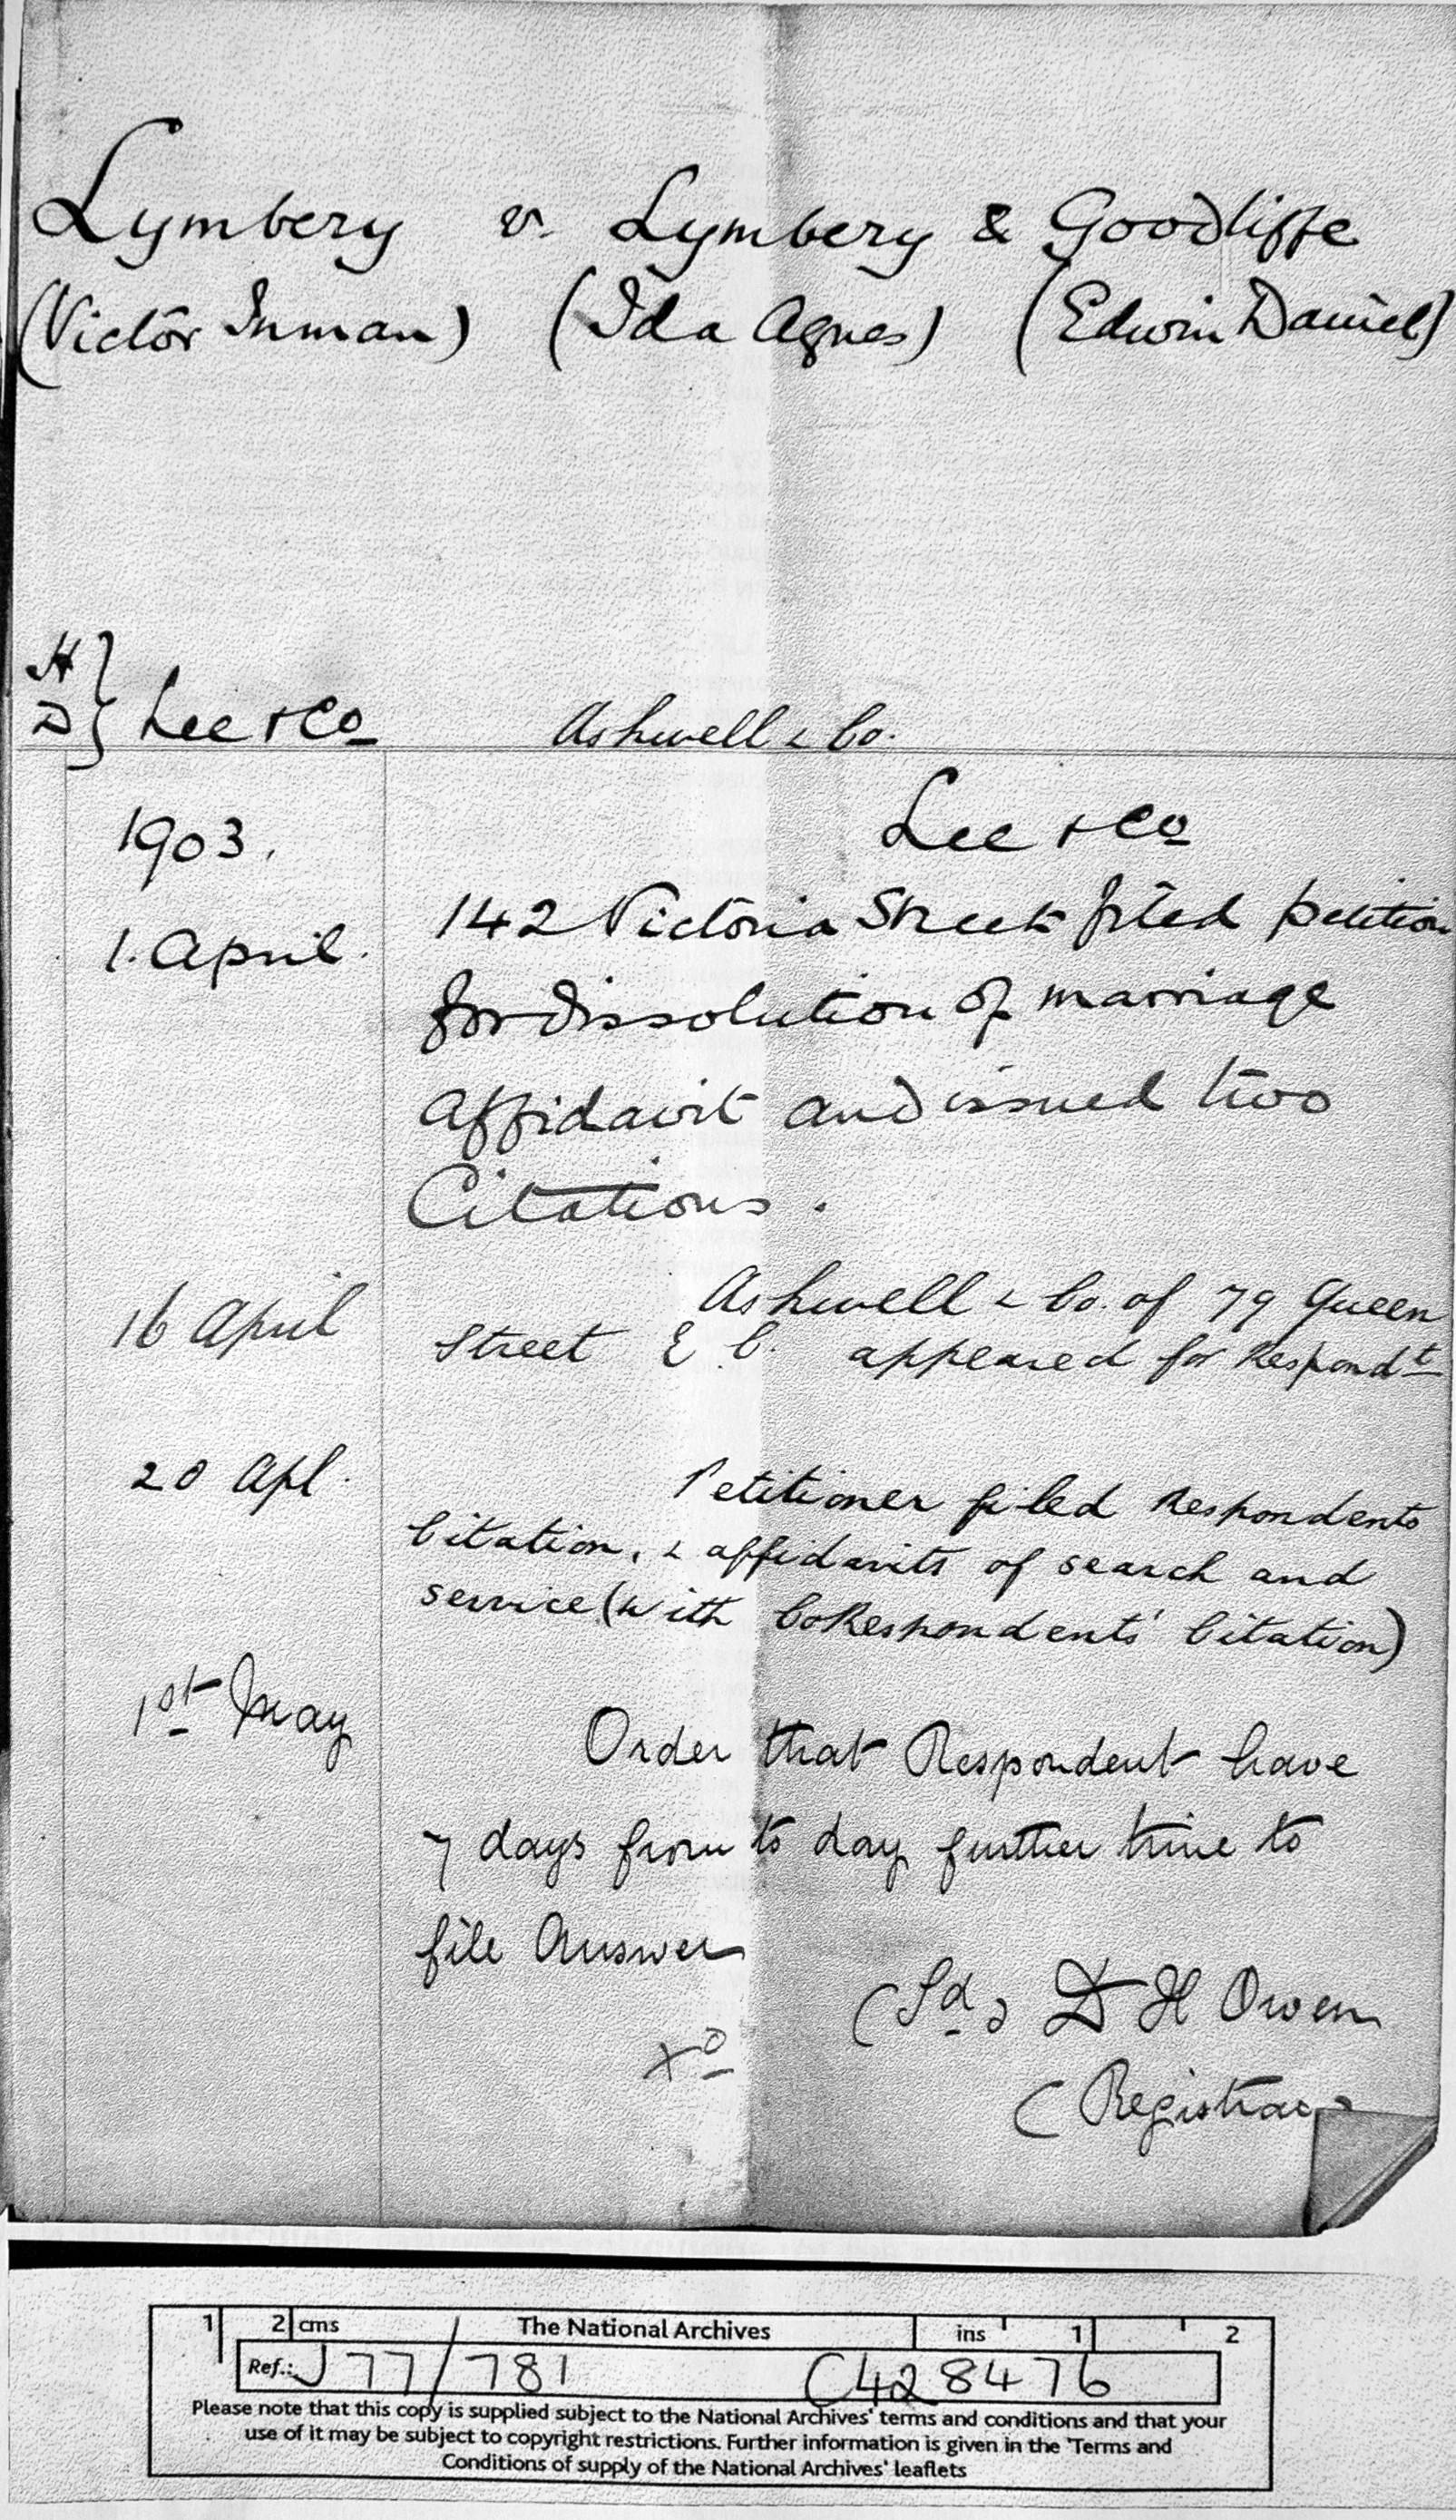 Lymbery v. Lymbery & Goodliffe
(Victor Inman) (Ida Agnes) (Edwin Daniel)
H
D } Lee & Co Ashwell & Co.
1903. Lee & Co
1. April. 142 Victoria Street filed petition
for dissolution of marriage
affidavit and issued two
Citations.
16 April Ashwell & Co. of 79 Queen
Street E.C. appeared for Respondt
20 Apl. Petitioner filed Respondents
Citation, & affidavits of search and
service (with CoRespondents' Citation)
1st May Order that Respondent have
7 days from to day further time to
file Answer
(Sd) D H Owen
(Registrar)
1 2 cms The National Archives ins 1 2
Ref.: J 77/781 C428476
Please note that this copy is supplied subject to the National Archives' terms and conditions and that your
use of it may be subject to copyright restrictions. Further information is given in the 'Terms and
Conditions of supply of the National Archives' leaflets